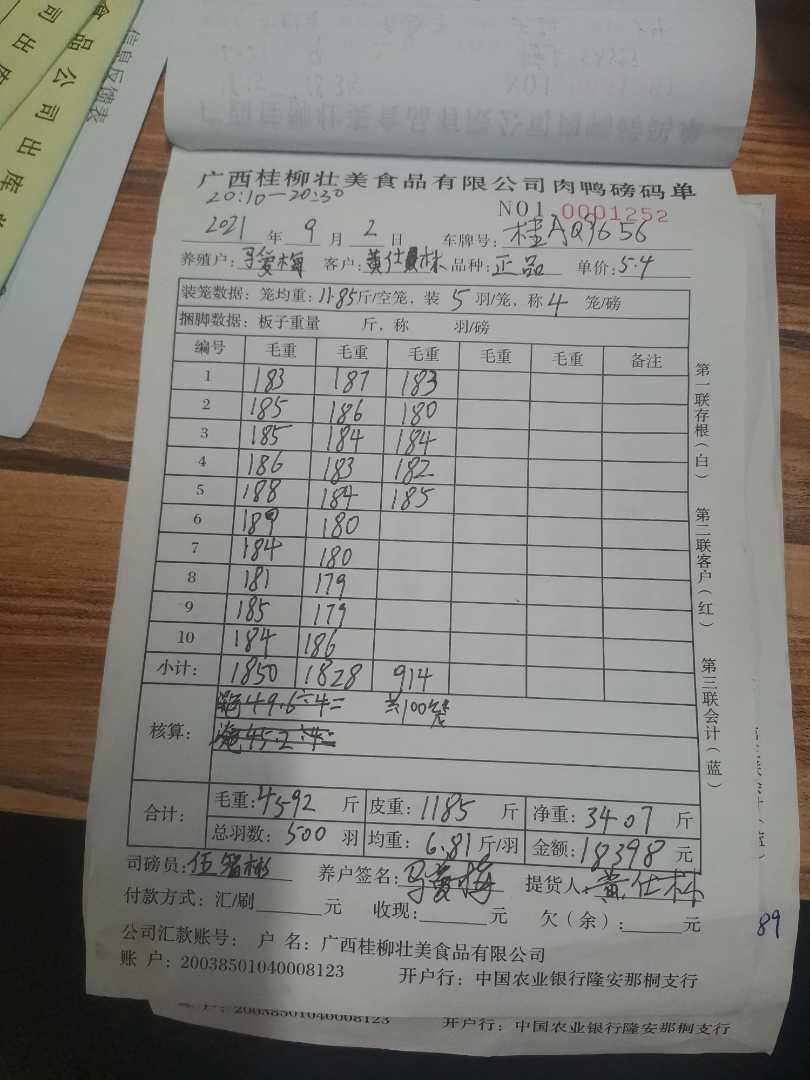 食品公司出库
公司出库
信息反馈表
广西桂柳壮美食品有限公司肉鸭磅码单
20:10—20:30
NO1 0001252
2021年9月2日 车牌号:桂AQ9656
养殖户: 客户:黄仕林 品种:正品 单价:5.4
装笼数据:笼均重:11.85斤/空笼,装5羽/笼,称4笼/磅
捆脚数据:板子重量 斤,称 羽/磅
编号 毛重 毛重 毛重 毛重 毛重 备注
1 183 187 183
2 185 186 180
3 185 184 184
4 186 183 182
5 188 184 185
6 189 180
7 184 180
8 181 179
9 185 179
10 184 186
小计: 1850 1828 914
核算: 49.6÷4= 共100笼
45.2÷4=
合计: 毛重:4592斤 皮重:1185斤 净重:3407斤
总羽数:500羽 均重:6.81斤/羽 金额:18398元
司磅员:伍智彬 养户签名: 提货人:黄仕林
付款方式:汇/刷 元 收现: 元 欠(余): 元
公司汇款账号: 户 名:广西桂柳壮美食品有限公司
账 户:20038501040008123 开户行:中国农业银行隆安那桐支行
第一联存根(白) 第二联客户(红) 第三联会计(蓝)
89
20038501040008123 开户行:中国农业银行隆安那桐支行